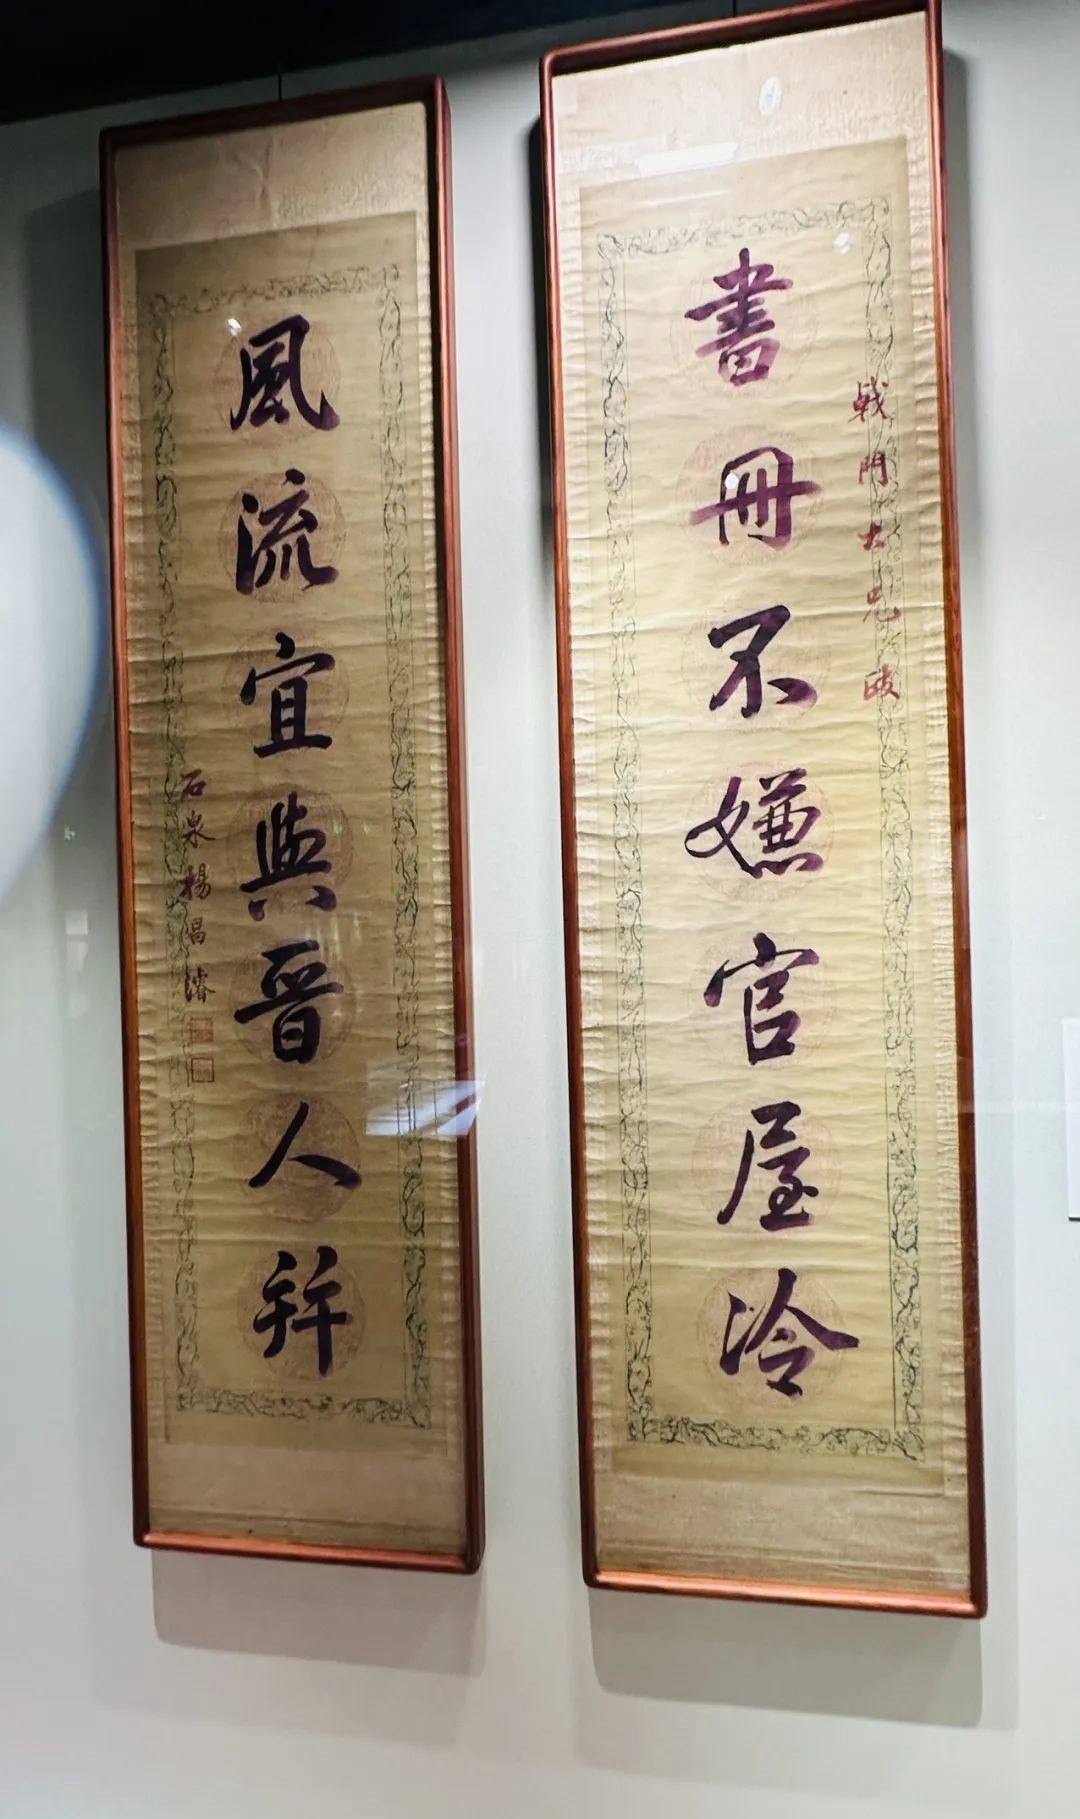 戟門大兄
書冊不嫌官屋冷
風流宜與晉人幷
石泉楊昌濬